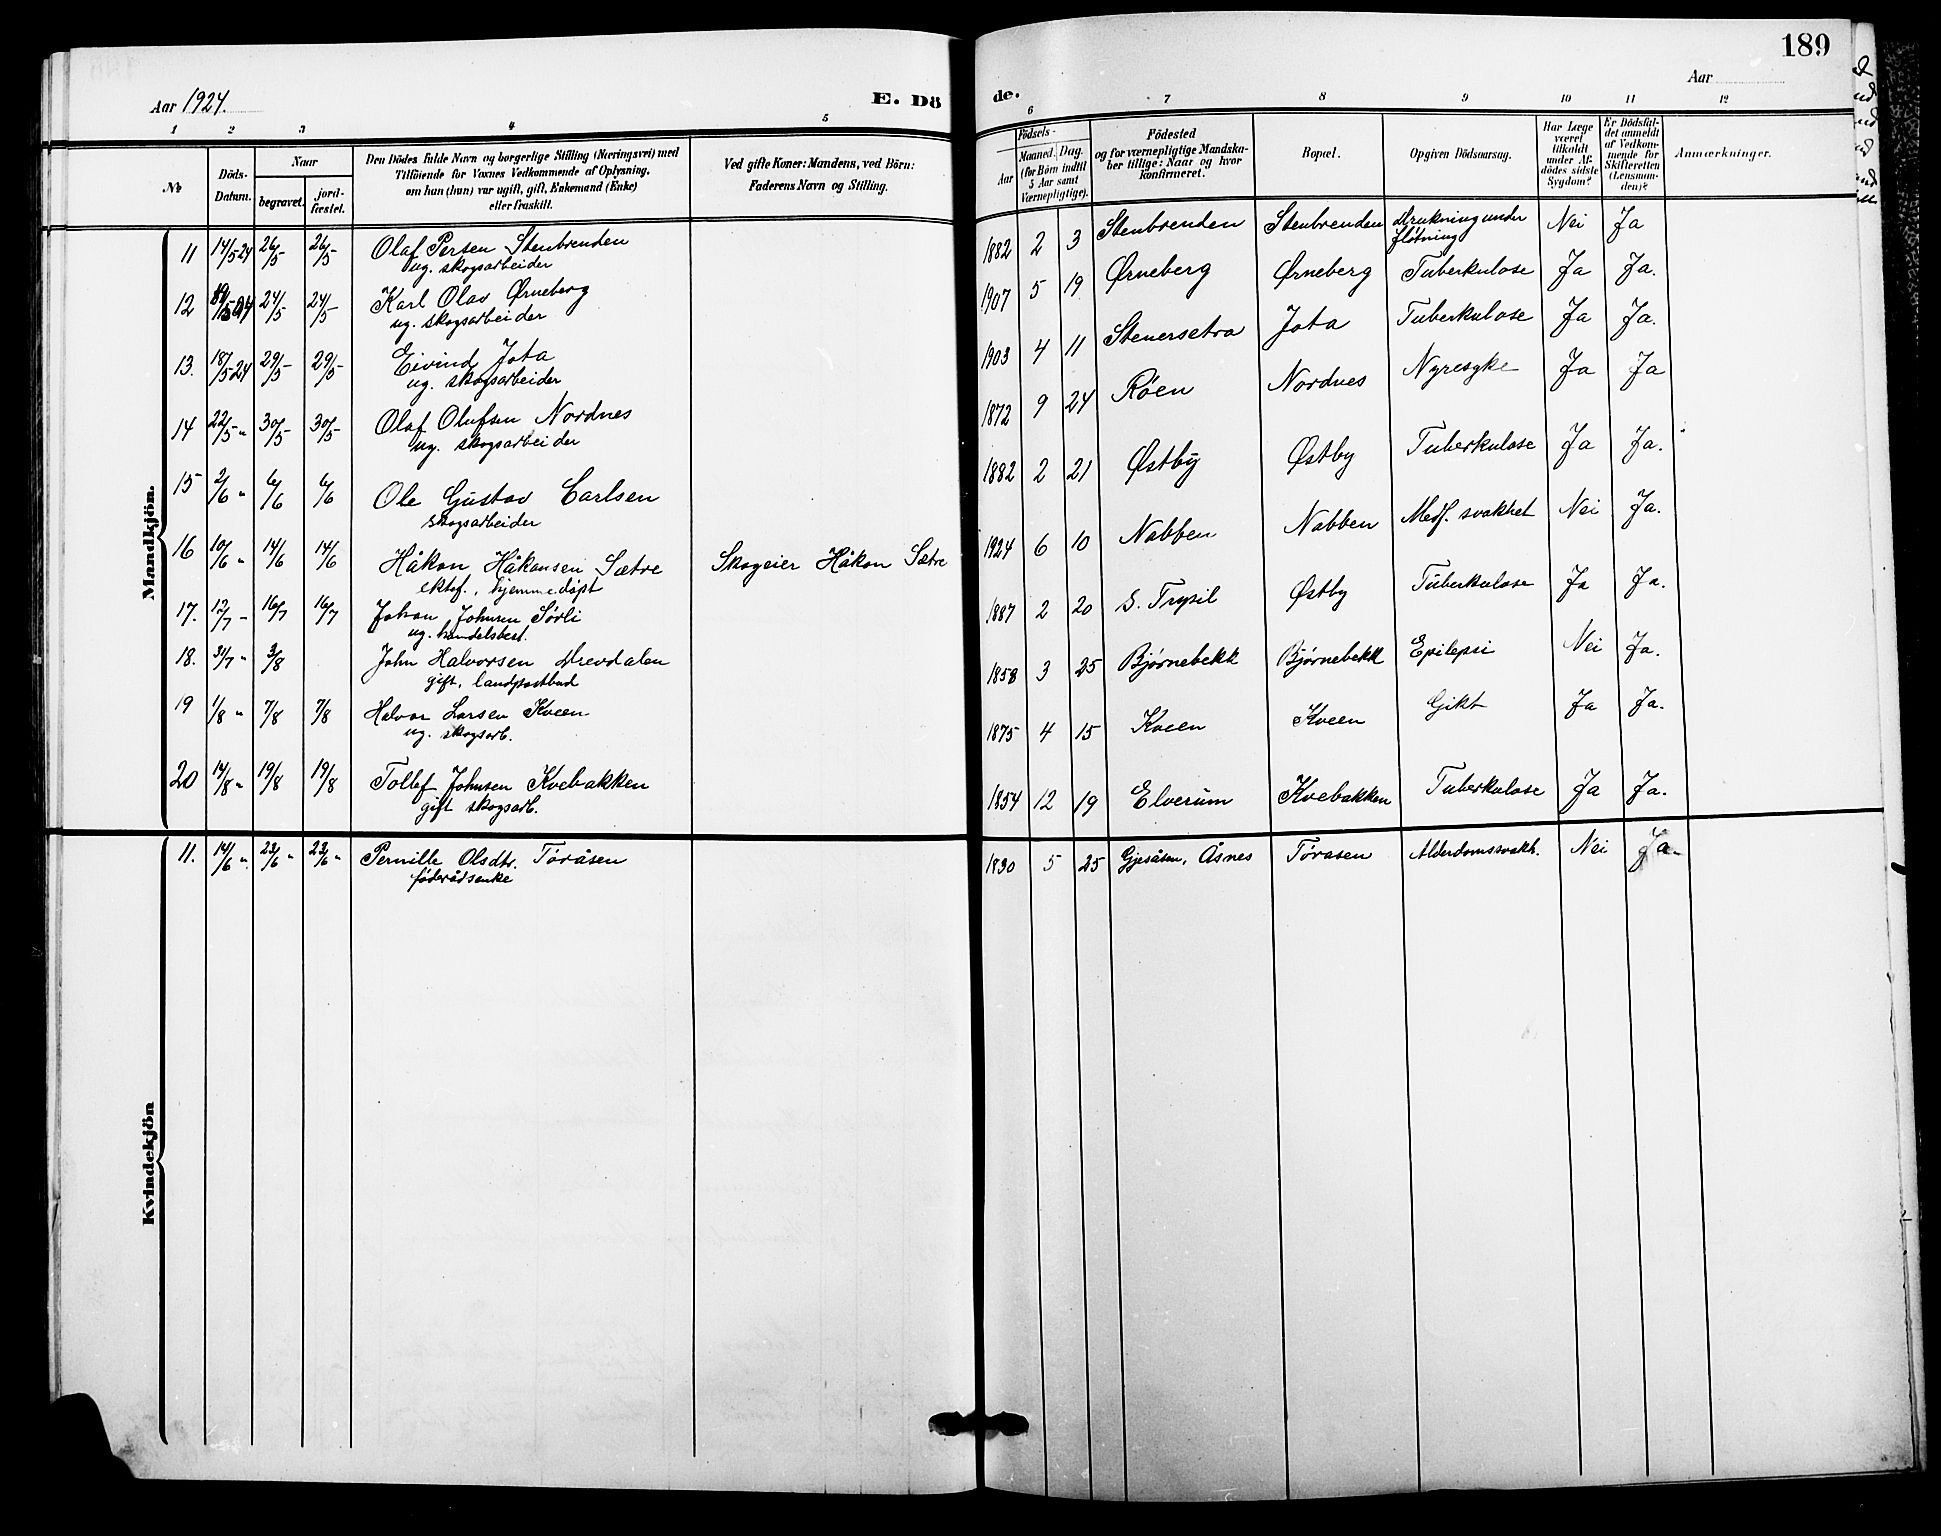 189
Aar 1924.
E. Dö
de.
Aar
1 2 3 4 5
6 7 8 9 10 11 12
№
Döds-Datum.
Naar
begravet.
jord-fæstet.
Den Dödes fulde Navn og borgerlige Stilling (Næringsvei) med
Tilföiende for Voxnes Vedkommende af Oplysning,
om han (hun) var ugift, gift, Enkemand (Enke)
eller fraskilt.
Ved gifte Koner: Mandens, ved Börn:
Faderens Navn og Stilling.
Födsels-
Aar
Maaned. Dag.
(for Börn indtil
5 Aar samt
Værnepligtige).
Födested
og for værnepligtige Mandska-
ber tillige: Naar og hvor
Konfirmeret.
Bopæl.
Opgiven Dödsaarsag.
Har Læge
været
tilkaldt
under Af-
dödes sidste
Sygdom?
Er Dödsfal-
det anmeldt
af Vedkom-
mende for
Skifteretten
(Lensman-
den)?
Anmærkninger.
Mandkjön.
11 14/5 24 26/5 26/5 Olaf Persen Stenbrenden
ug. skogsarbeider
1882 2 3 Stenbrenden Stenbrenden Drukning under
fløtning Nei Ja
12 19/5 24 24/5 24/5 Karl Olav Ørneberg
ug. skogsarbeider
1907 5 19 Ørneberg Ørneberg Tuberkulose Ja Ja.
13. 18/5 24 29/5 29/5 Eivind Jota
ug. skogsarbeider
1903 4 11 Stenersetra Jota Tuberkulose Ja Ja.
14 22/5 " 30/5 30/5 Olaf Olufsen Nordnes
ug. skogsarbeider
1872 9 24 Røen Nordnes Nyresyke Ja Ja
15 2/6 " 6/6 6/6 Ole Gustav Carlsen
skogsarbeider
1882 2 21 Østby Østby Tuberkulose Ja Ja.
16 10/6 " 14/6 14/6 Håkon Håkonsen Sætre Skogeier Håkon Sætre
ektef., hjemmedøpt
1924 6 10 Nabben Nabben Medf. svakhet Nei Ja.
17. 12/7 - 16/7 16/7 Johan Johnsen Sørli
ug. handelsbest.
1887 2 20 S. Trysil Østby Tuberkulose Ja Ja.
18. 31/7 " 3/8 John Halvorsen Drevdalen
gift, landpostbud
1858 3 25 Bjørnebekk Bjørnebekk Epilepsi Nei Ja.
19 1/8 " 7/8 7/8 Halvor Larsen Kveen
ug. skogsarb.
1875 4 15 Kveen Kveen Gikt Ja Ja.
20 14/8 " 19/8 19/8 Tollef Johnsen Kvebakken
gift skogsarb.
1854 12 19 Elverum Kvebakken Tuberkulose Ja Ja.
Kvindekjön
11. 14/6 " 23/6 " 23/6 " Pernille Olsdtr. Töråsen
føderådsenke
1830 5 25 Gjesåsen, Åsnes Töråsen Alderdomssvakh. Nei Ja.